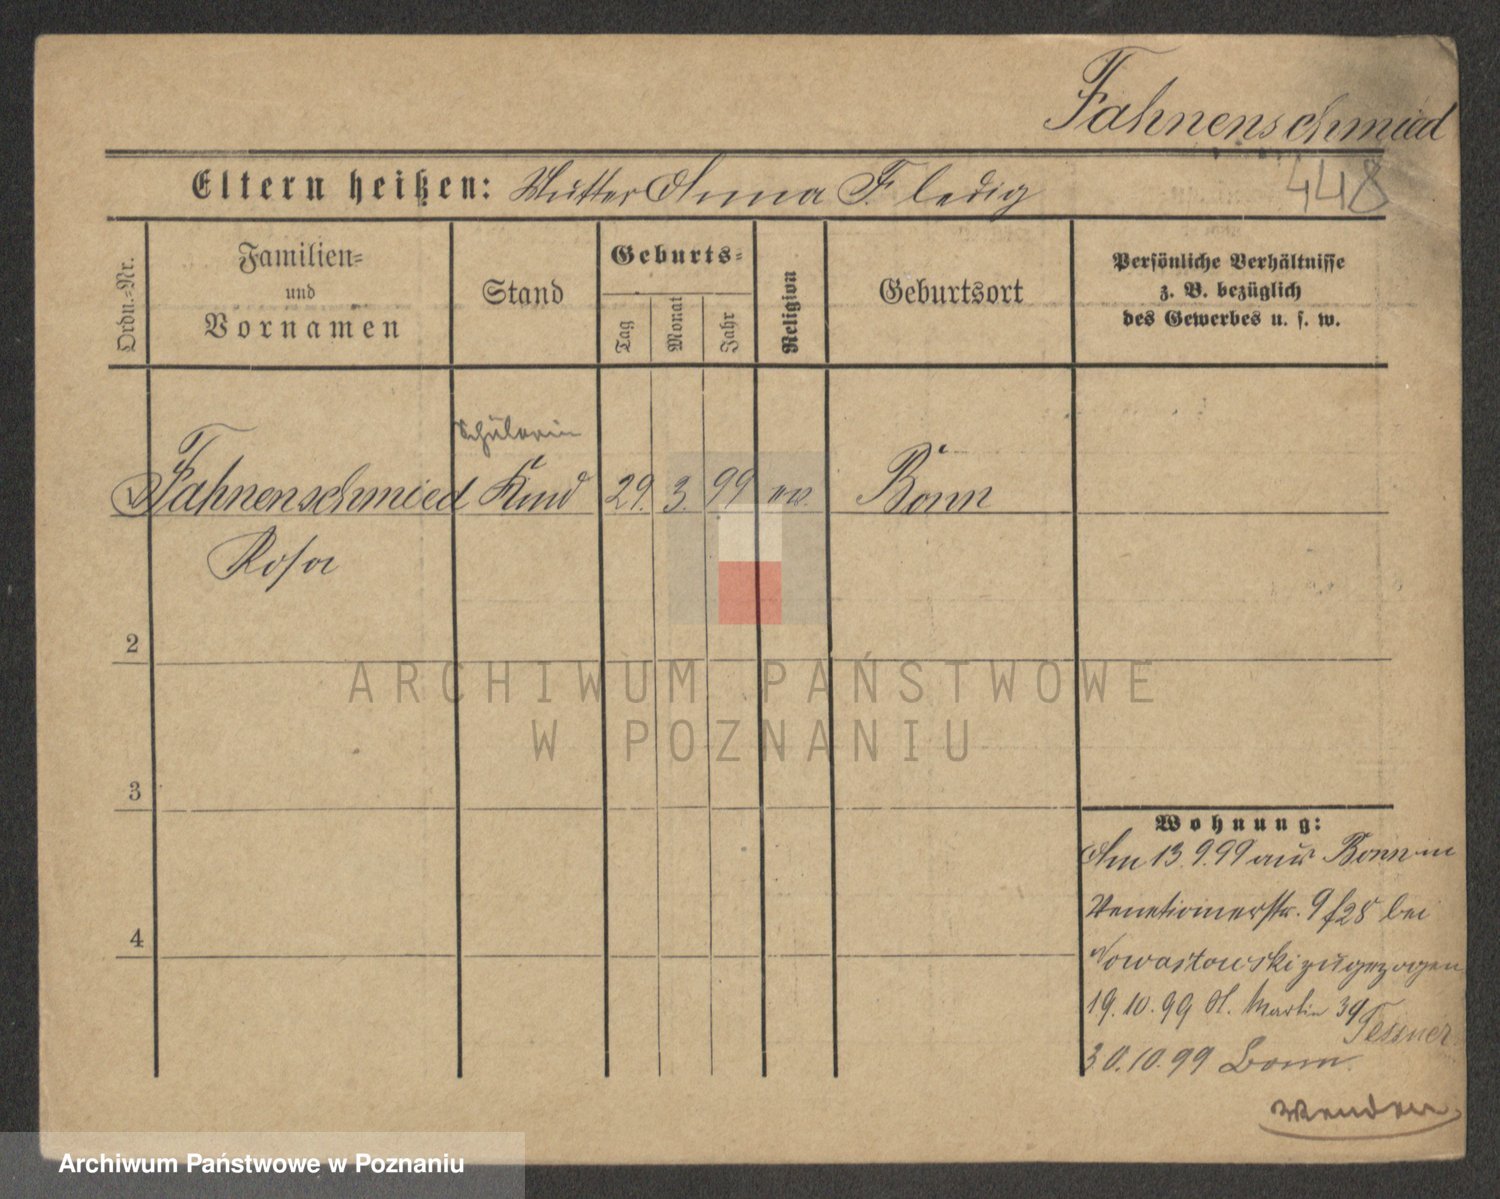 Fahnenschmied
448
Eltern heißen: Mutter Anna F. ledig
Ordn.=Nr.
Familien=
und
Vornamen
Stand
Geburts=
Tag
Monat
Jahr
Religion
Geburtsort
Persönliche Verhältnisse
z. B. bezüglich
des Gewerbes u. s. w.
Schülerin
Fahnenschmied Kind 29. 3. 99 Bonn
Rosa
2
3
4
Wohnung:
Am 13.9.99 aus Bonn in
Venetianerstr. 9 bei
Nowastowski zugezogen
19.10.99 St. Martin 34
Tessner
30.10.99 Bonn
Wenden
ARCHIWUM PAŃSTWOWE
W POZNANIU
Archiwum Państwowe w Poznaniu